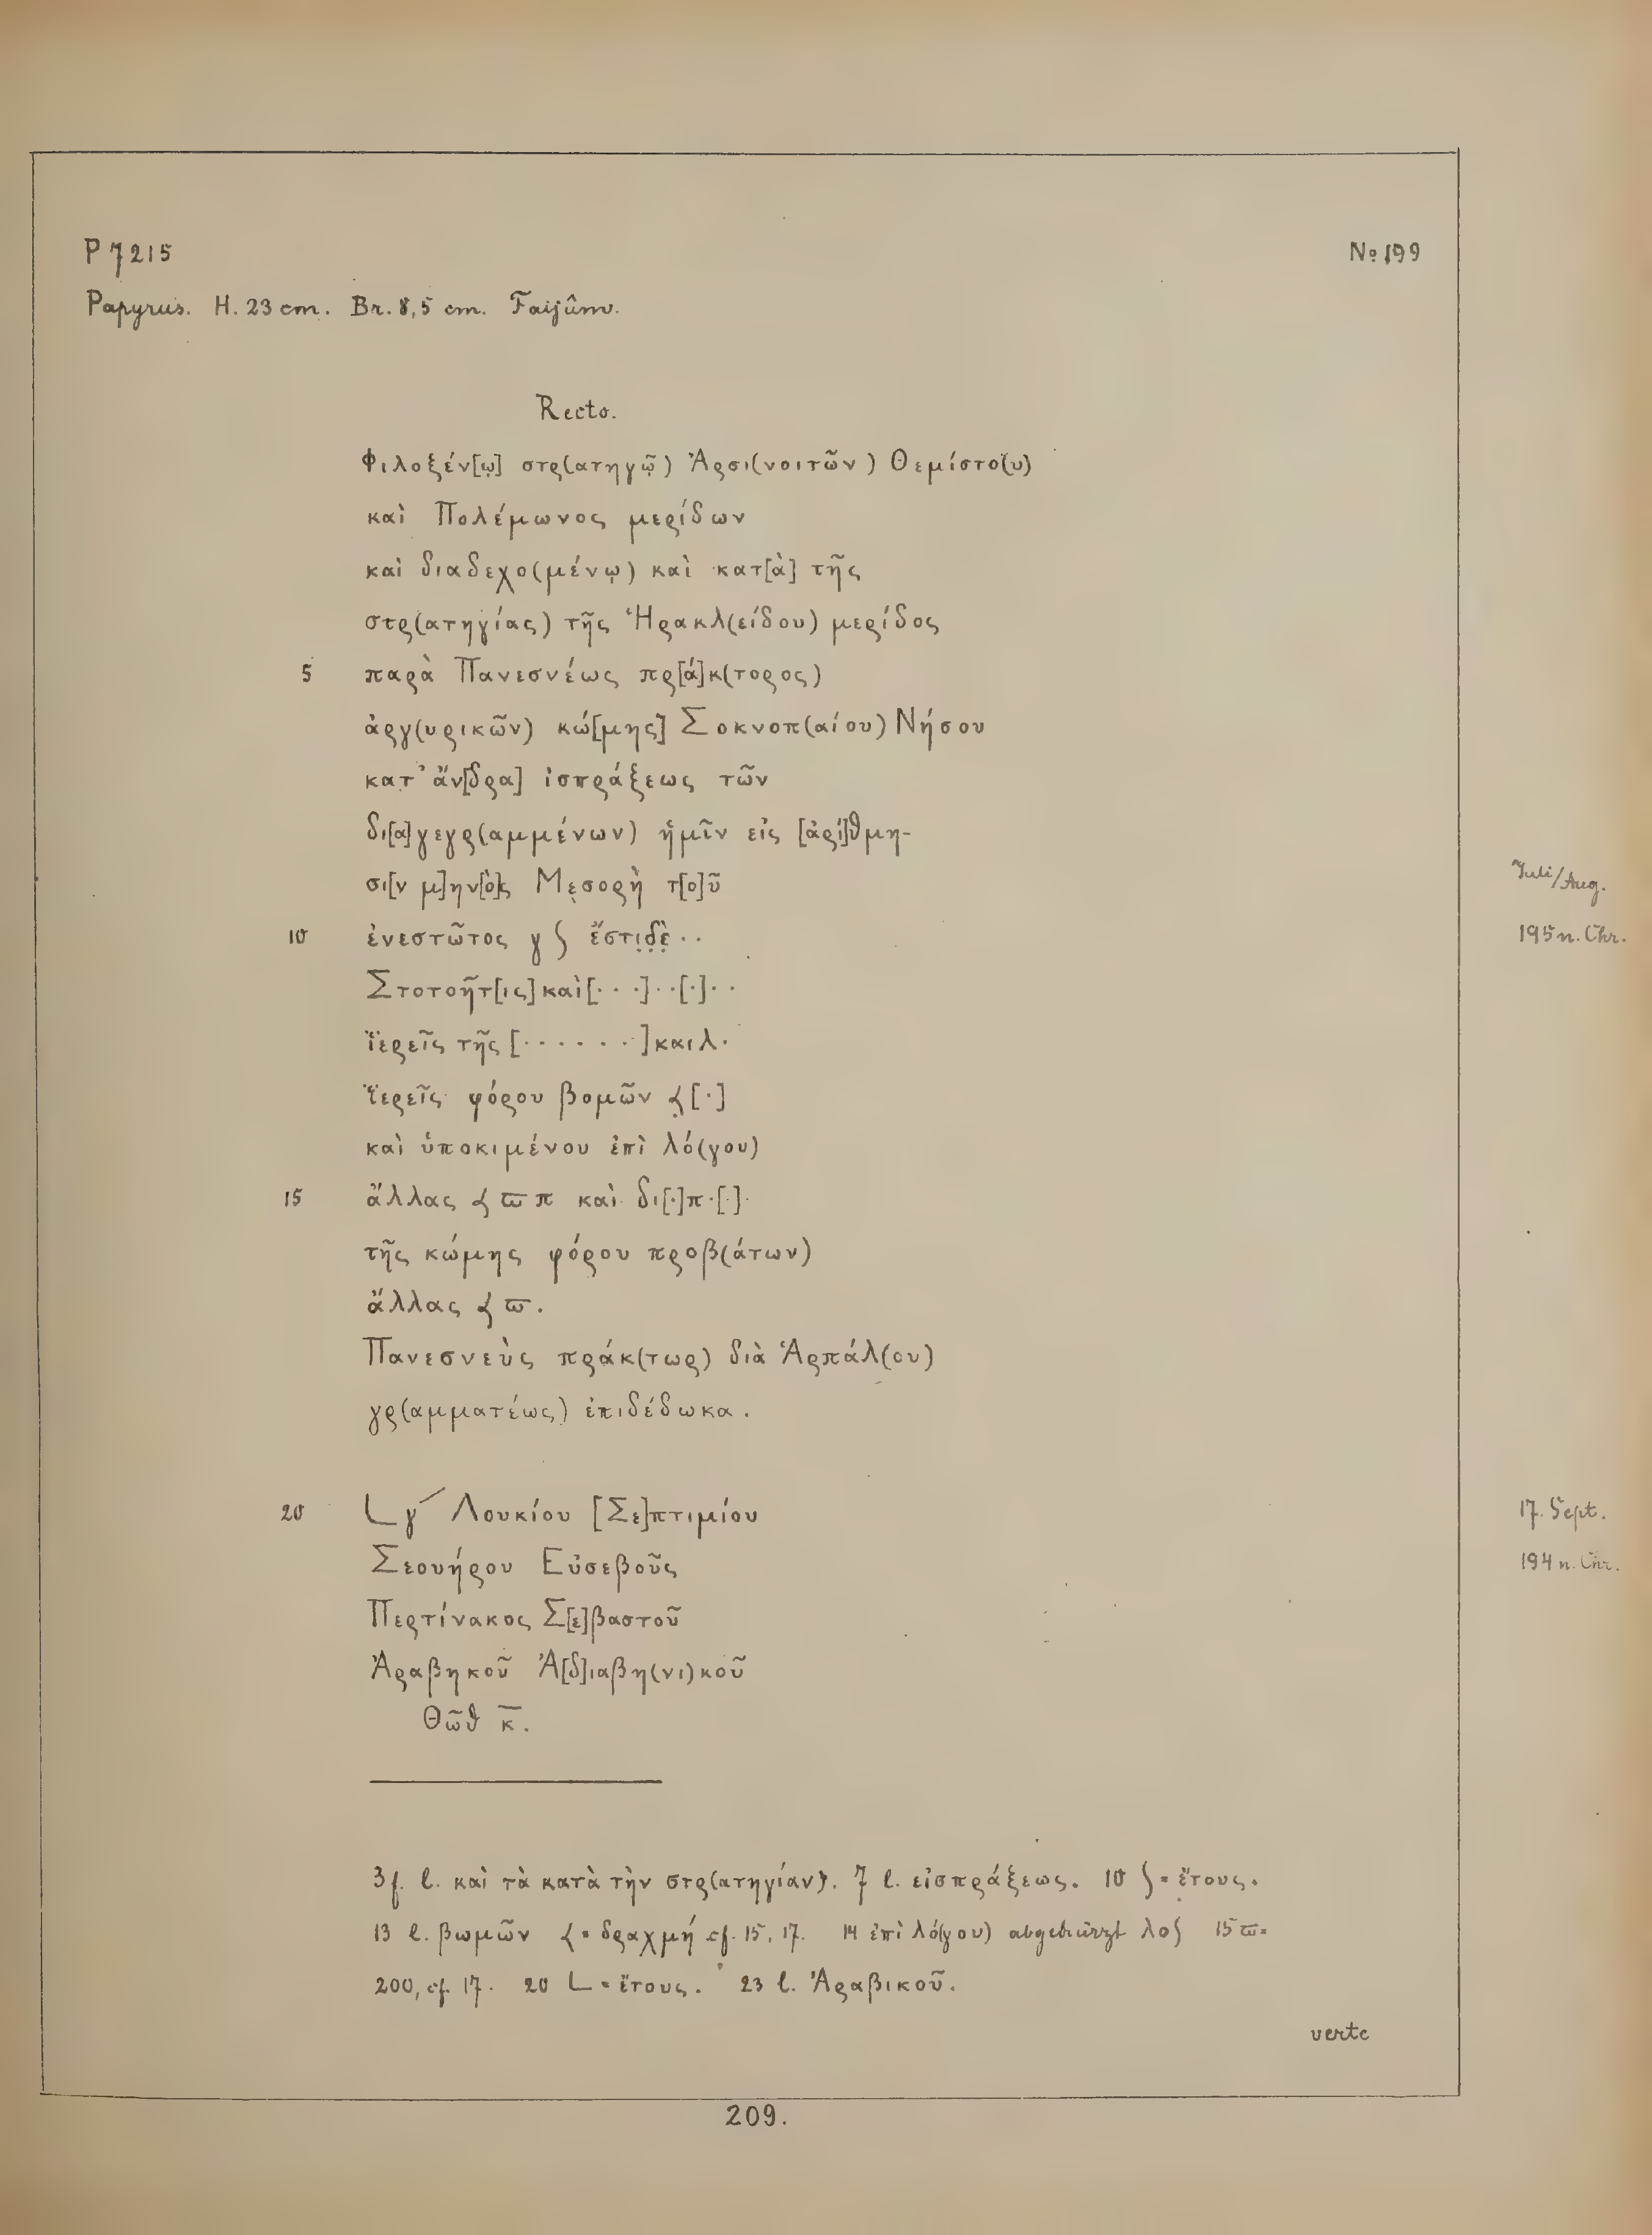 P 7215 No 199
Papyrus. H. 23 cm. Br. 8,5 cm. Faijûm.
Recto.
Φιλοξέν[ῳ] στρ(ατηγῷ) Ἀρσι(νοιτῶν) Θεμίστο(υ)
καὶ Πολέμωνος μερίδων
καὶ διαδεχο(μένῳ) καὶ κατ[ὰ] τῆς
στρ(ατηγίας) τῆς Ἡρακλ(είδου) μερίδος
5 παρὰ Πανεσνέως πρ[ά]κ(τορος)
ἀργ(υρικῶν) κώ[μης] Σοκνοπ(αίου) Νήσου
κατ' ἄν[δρα] ἰσπράξεως τῶν
δι[α]γεγρ(αμμένων) ἡμῖν εἰς [ἀρί]θμη-
σι[ν μ]ην[ὸ]ς Μεσορὴ τ[ο]ῦ Juli/Aug.
10 ἐνεστῶτος γ ʃ ἔστι̣δ̣ὲ̣ · · 195 n. Chr.
Στοτοῆτ[ις] καὶ [· · ·] · · [·] · ·
ἱερεῖς τῆς [· · · · · ·] και λ ·
ἱερεῖς φόρου βομῶν ⳨ [·]
καὶ ὑποκιμένου ἐπὶ λό(γου)
15 ἄλλας ⳨ ϖ π καὶ δι[·]π·[·]·
τῆς κώμης φόρου προβ(άτων)
ἄλλας ⳨ ϖ.
Πανεσνεὺς πράκ(τωρ) διὰ Ἁρπάλ(ου)
γρ(αμματέως) ἐπιδέδωκα.
20 L γ´ Λουκίου [Σε]πτιμίου 17. Sept.
Σεουήρου Εὐσεβοῦς 194 n. Chr.
Περτίνακος Σ[ε]βαστοῦ
Ἀραβηκοῦ Ἀ[δ]ιαβη(νι)κοῦ
Θῶθ κ̅.
3 f. l. καὶ τὰ κατὰ τὴν στρ(ατηγίαν). 7 l. εἰσπράξεως. 10 ʃ = ἔτους.
13 l. βωμῶν ⳨ = δραχμή cf. 15, 17. 14 ἐπὶ λό(γου) abgekürzt λοʃ 15 ϖ =
200, cf. 17. 20 L = ἔτους. 23 l. Ἀραβικοῦ.
verte
209.